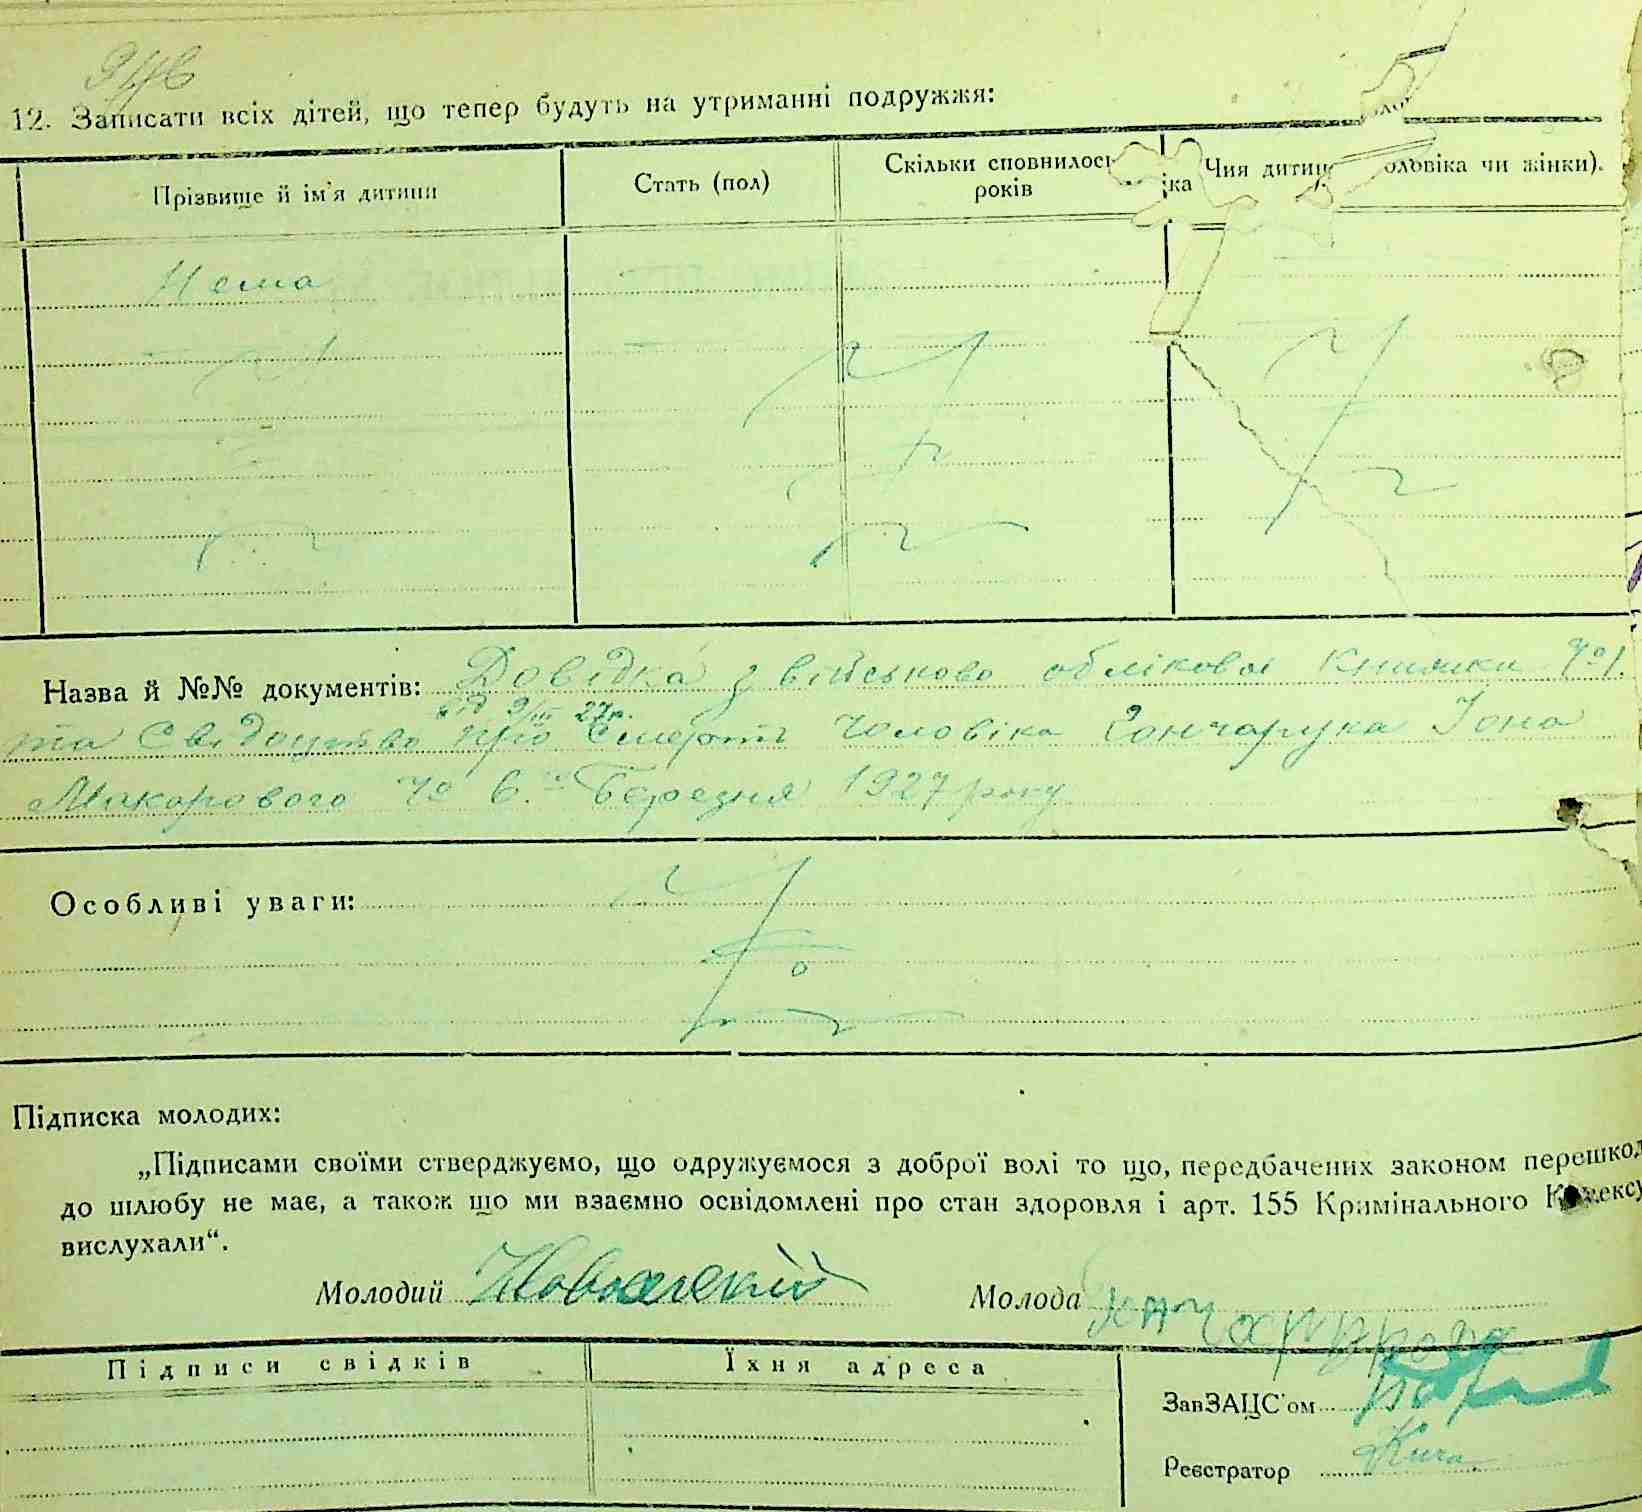 12. Записати всіх дітей, що тепер будуть на утриманні подружжя:
Прізвище й ім'я дитини
Стать (пол)
Скільки сповнилось
років
Чия дитина оловіка чи жінки).
Нема
Назва й №№ документів: Довідка з військово облікової книжки № 1.
від 9/III 27р.
та Свідоцтво про Смерть чоловіка Гончарука Іона
Макарового № 6. Березня 1927 року
Особливі уваги:
Підписка молодих:
„Підписами своїми стверджуємо, що одружуємося з доброї волі то що, передбачених законом перешкод
до шлюбу не має, а також що ми взаємно освідомлені про стан здоровля і арт. 155 Кримінального Кодексу
вислухали“.
Молодий
Молода
Підписи свідків
Їхня адреса
ЗавЗАЦС'ом
Реєстратор